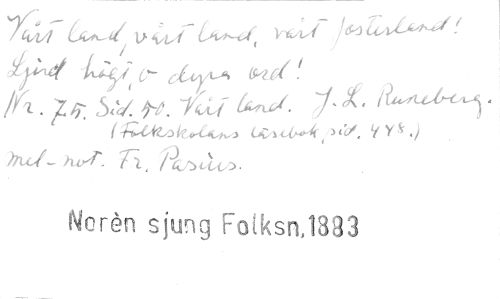 Vårt land, vårt land, vårt fosterland!
Ljud högt, o dyra ord!
Nr. 75. Sid. 50. Vårt land. J. L. Runeberg.
(Folkskolans läsebok, sid. 448.)
mel-not. Fr. Pacius.
Norèn sjung Folksn,1883